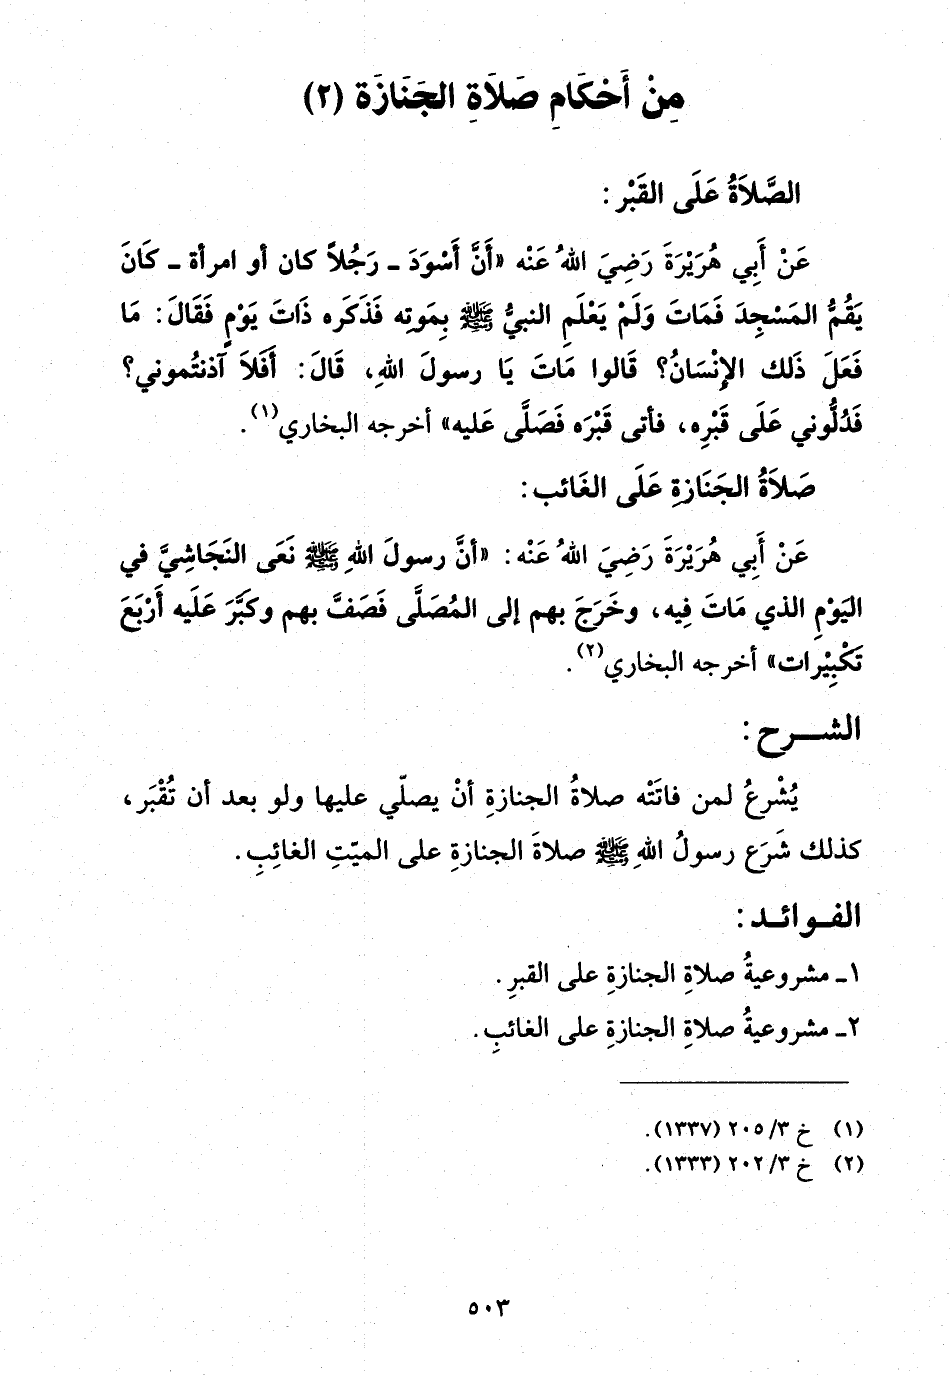 مِنْ أَحْكَامِ صَلاَةِ الجَنَازَة (٢)
الصَّلاَةُ عَلَى القَبْر :
عَنْ أَبِي هُرَيْرَةَ رَضِيَ اللهُ عَنْه «أَنَّ أَسْوَدَ ـ رَجُلاً كان أو امرأة ـ كَانَ
يَقُمُّ المَسْجِدَ فَمَاتَ وَلَمْ يَعْلَمِ النبيُّ ﷺ بِمَوتِه فَذَكَره ذَاتَ يَوْمٍ فَقَالَ: مَا
فَعَلَ ذَلك الإِنْسَانُ؟ قَالوا مَاتَ يَا رسولَ اللهِ، قَالَ: أَفَلاَ آذنتُموني؟
فَدُلُّوني عَلَى قَبْرِه، فأتى قَبْرَه فَصَلَّى عَليه» أخرجه البخاري(١).
صَلاَةُ الجَنَازةِ عَلَى الغَائب:
عَنْ أَبِي هُرَيْرَةَ رَضِيَ اللهُ عَنْه: «أنَّ رسولَ اللهِ ﷺ نَعَى النَجَاشِيَّ في
اليَوْمِ الذي مَاتَ فِيه، وخَرَجَ بهم إلى المُصَلَّى فَصَفَّ بهم وكبَّرَ عَلَيه أَرْبَعَ
تَكْبِيْرات» أخرجه البخاري(٢).
الشـــرح:
يُشْرعُ لمن فاتَتْه صلاةُ الجنازةِ أنْ يصلّي عليها ولو بعد أن تُقْبَر،
كذلك شَرَع رسولُ اللهِ ﷺ صلاةَ الجنازةِ على الميّتِ الغائِبِ.
الفـوائـد:
١ـ مشروعيةُ صلاةِ الجنازةِ على القبرِ.
٢ـ مشروعيةُ صلاةِ الجنازةِ على الغائبِ.
(١) خ ٣/ ٢٠٥ (١٣٣٧).
(٢) خ ٣/ ٢٠٢ (١٣٣٣).
٥٠٣